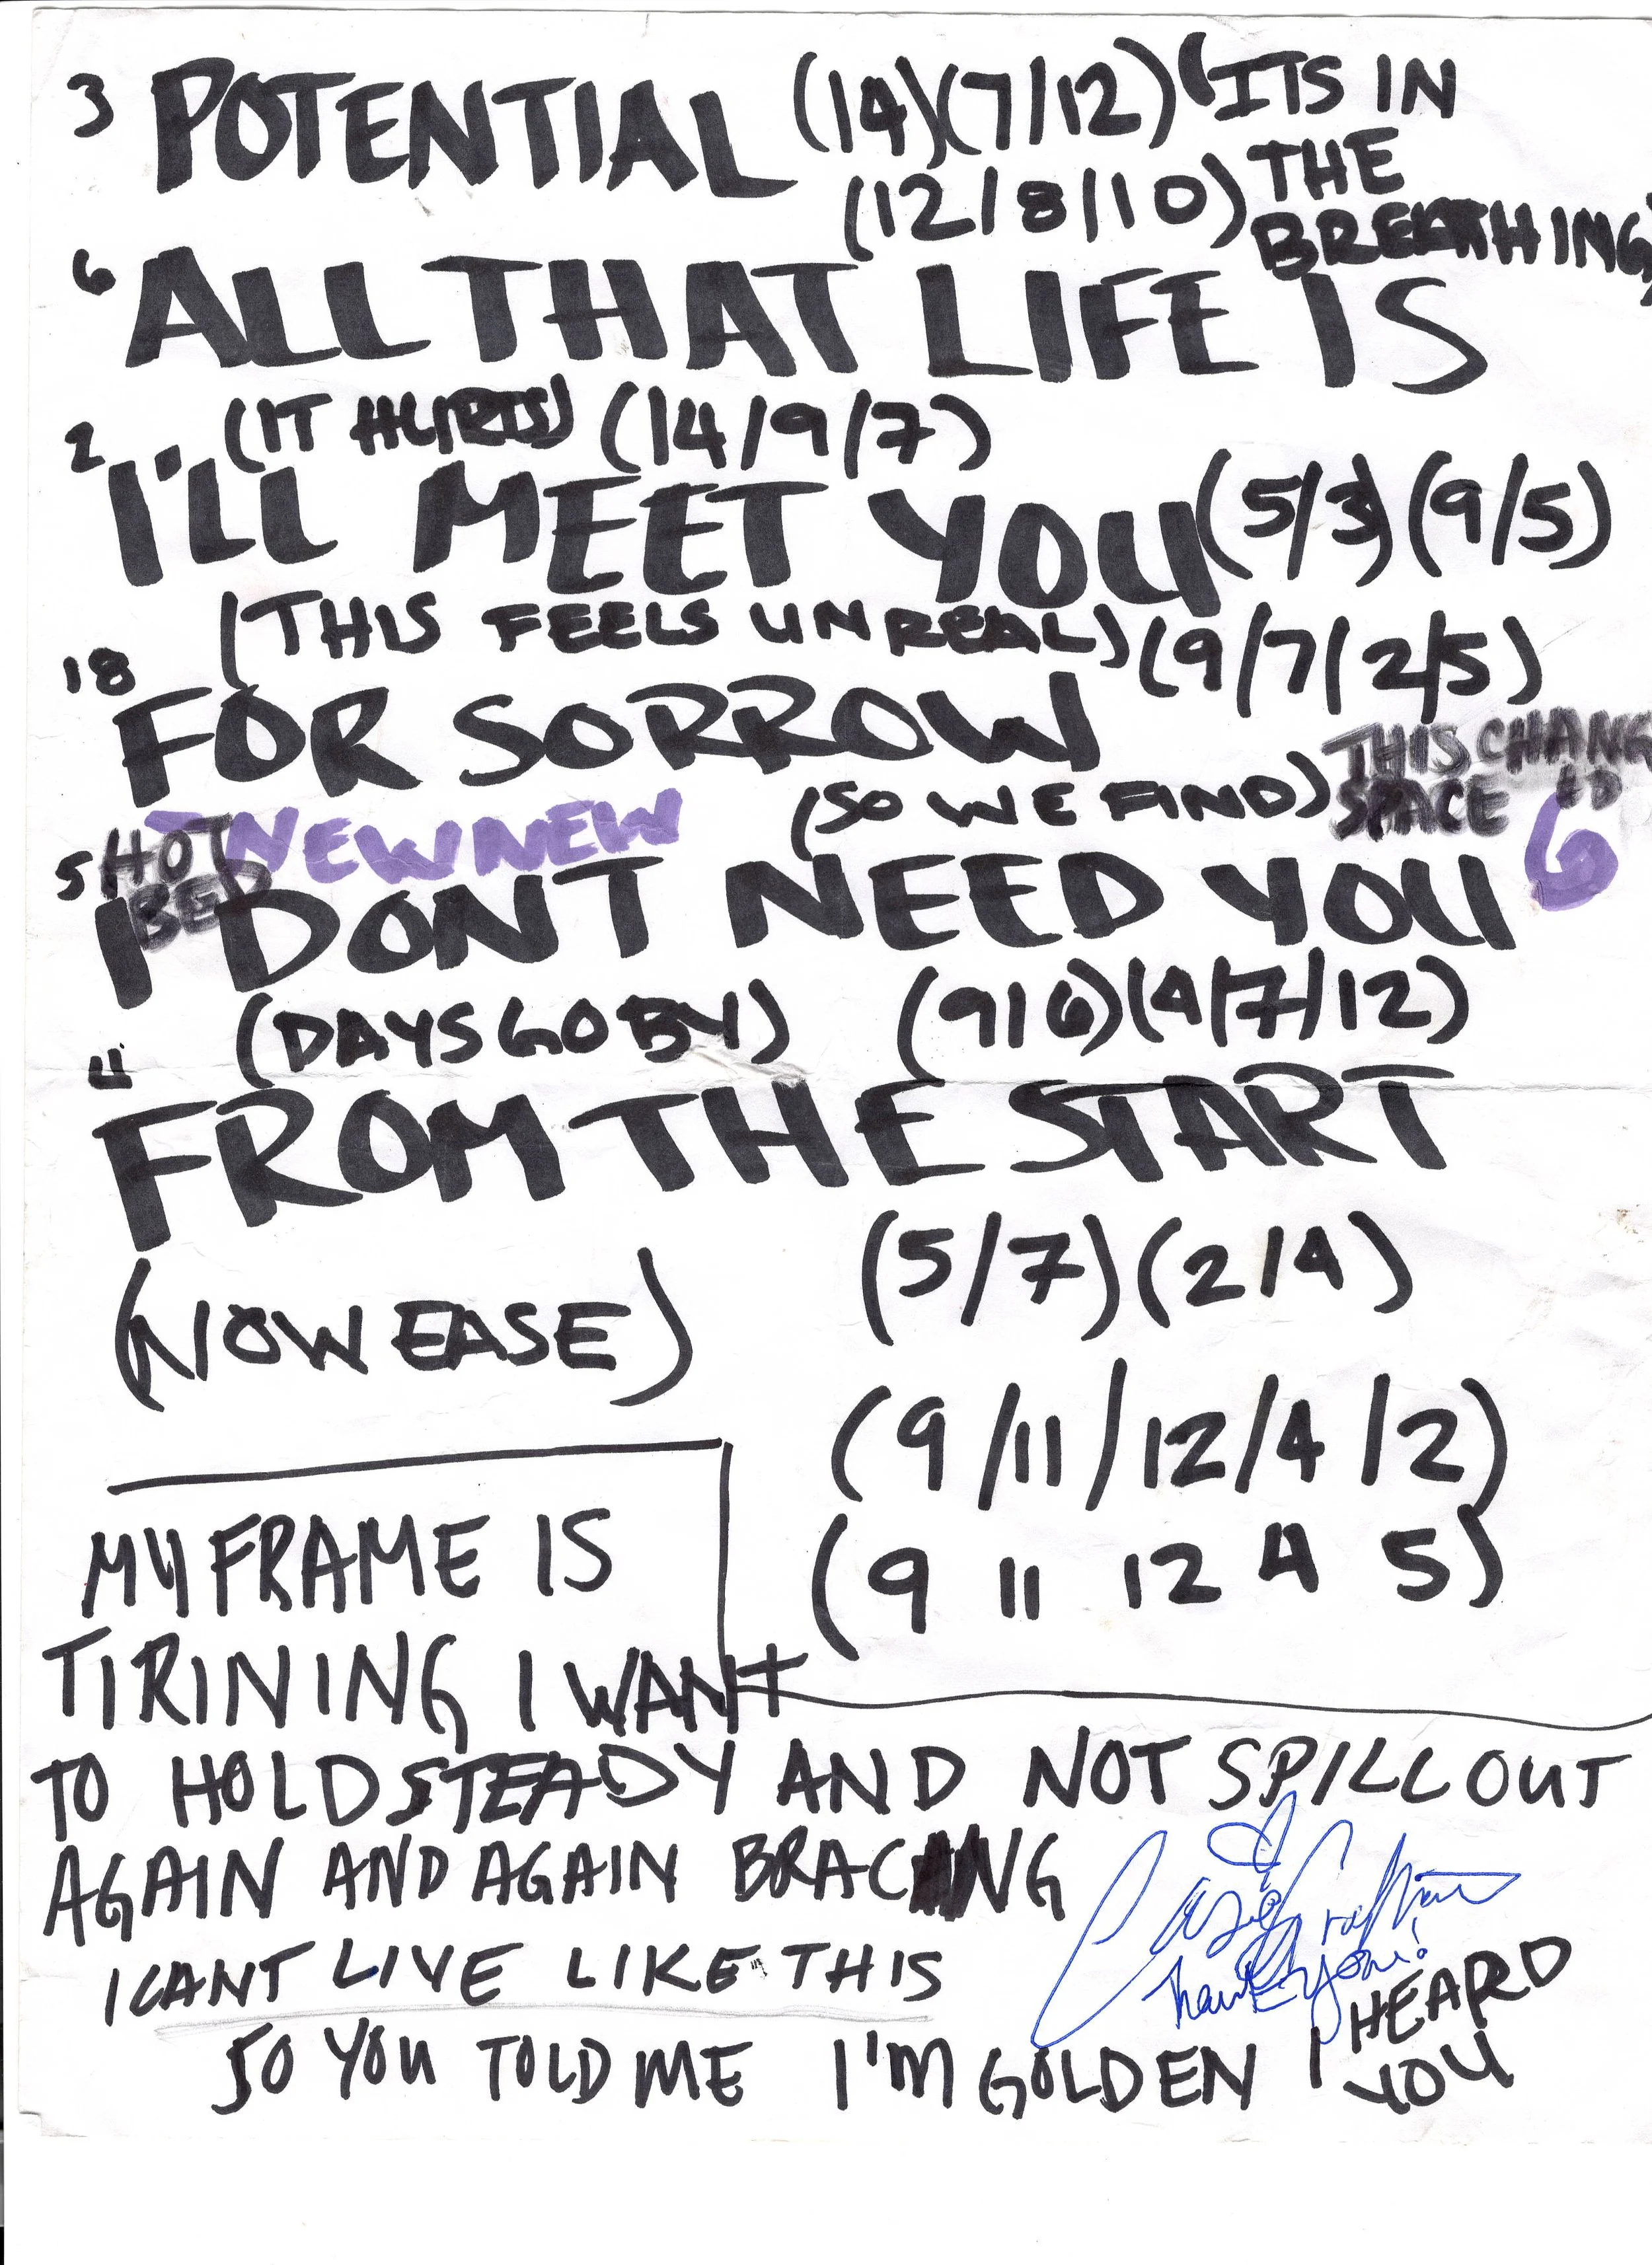 3 POTENTIAL (14)(7/12) (ITS IN
(12/8/10) THE
BREATHING)
6 ALL THAT LIFE IS
(IT HURTS) (14/9/7)
2 I'LL MEET YOU (5/3) (9/5)
(THIS FEELS UNREAL) (9/7/2/5)
18 FOR SORROW
(SO WE FIND) THIS CHANG
SPACE ED
HOT NEWNEW 6
BED
5 I DONT NEED YOU
(DAYS GO BY) (9/6)(4/7/12)
11 FROM THE START
(5/7)(2/4)
(NOW EASE)
(9/11/12/4/2)
(9 11 12 4 5)
MY FRAME IS
TIRINING I WANT
TO HOLD STEADY AND NOT SPILL OUT
AGAIN AND AGAIN BRACING
I CANT LIVE LIKE THIS
Thank you!
SO YOU TOLD ME I'M GOLDEN I HEARD
YOU